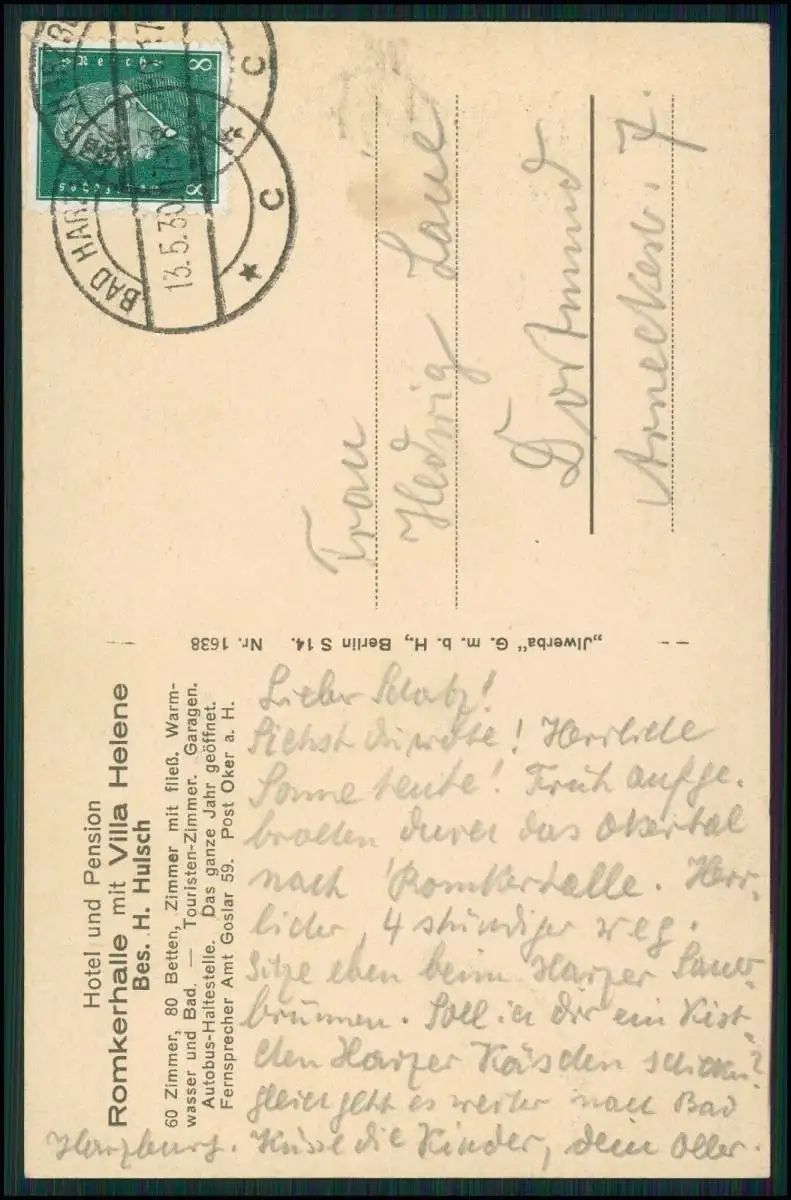 Hotel und Pension
Romkerhalle mit Villa Helene
Bes. H. Hulsch
60 Zimmer, 80 Betten, Zimmer mit fließ. Warm-
wasser und Bad. — Touristen-Zimmer. Garagen.
Autobus-Haltestelle. Das ganze Jahr geöffnet.
Fernsprecher Amt Goslar 59. Post Oker a. H.
Lieber Schatz!
Siehst du wohl! Herrliche
Sonne heute! Früh aufge-
brochen durch das Okertal
nach Romkerhalle. Herr-
licher, 4 stündiger Weg.
Sitze eben beim Harzer Sauer-
brunnen. Soll ich dir ein Kist-
chen Harzer Käschen schicken?
Gleich geht es weiter nach Bad
Harzburg. Küsse die Kinder, dein Oller.
„Jlwerba" G. m. b. H., Berlin S 14. Nr. 1638
8 8
BAD HARZ
13.5.30
C
C
Frau
Hedwig Laue
Dortmund
Arneckestr. 7.